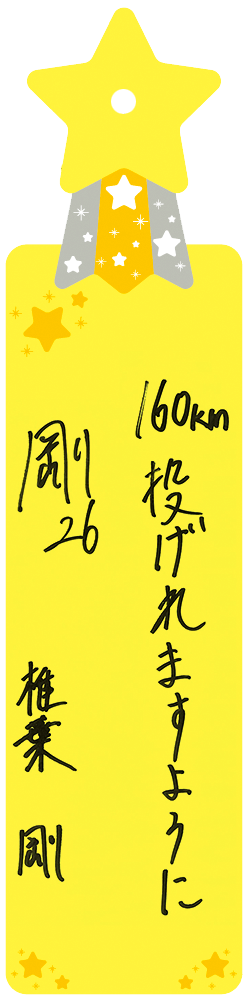 160km投げれますように
剛26
椎葉 剛